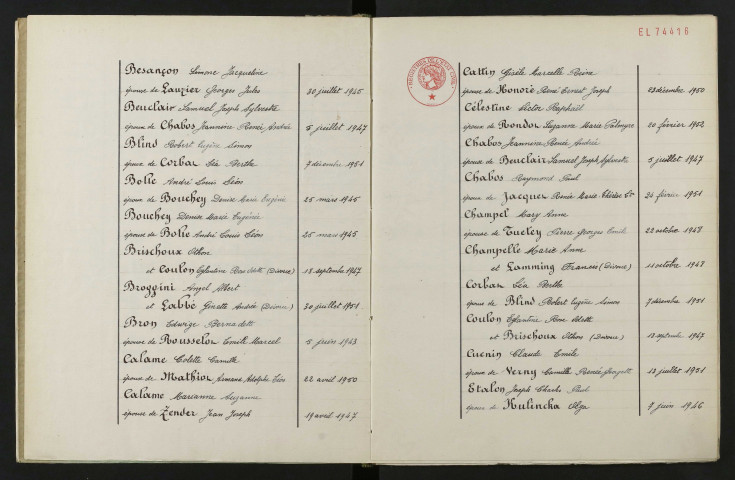 Besançon Simone Jacqueline
épouse de Lauzier Georges Jules 30 juillet 1945
Beuclair Samuel Joseph Sylvestre
époux de Chabos Jeannine Renée Andrée 5 juillet 1947
Blind Robert Eugène Simon
époux de Corbar Léa Berthe 7 décembre 1951
Bolle André Louis Léon
époux de Bouchey Denise Marie Eugénie 25 mars 1945
Bouchey Denise Marie Eugénie
épouse de Bolle André Louis Léon 25 mars 1945
Brischoux Othon
et Coulon Eglantine Rose Odette (Divorce) 18 septembre 1947
Broggini Angel Albert
et Labbé Ginette Andrée (Divorce) 30 juillet 1951
Bron Edwige Bernadette
épouse de Rousselor Emile Marcel 5 juin 1943
Calame Colette Camille
épouse de Mathior Armand Adolphe 22 avril 1950
Calame Marianne Suzanne
épouse de Zender Jean Joseph 19 avril 1947
EL 74416
Cattin Gisèle Marcelle
épouse de Honoré René Ernest Joseph 23 décembre 1950
Célestine Victor Raphaël
époux de Rondor Suzanne Marie 20 février 1952
Chabos Jeannine Renée Andrée
épouse de Beuclair Samuel Joseph Sylvestre 5 juillet 1947
Chabos Raymond Paul
époux de Jacques Renée Marie Thérèse 24 février 1951
Champel Mary Anne
épouse de Tuetey Pierre Georges Emile 22 octobre 1948
Champelle Marie Anne
et Lamming Francis (Divorce) 11 octobre 1947
Corbar Léa Berthe
épouse de Blind Robert Eugène Simon 7 décembre 1951
Coulon Eglantine Rose Odette
et Brischoux Othon (Divorce) 18 septembre 1947
Cuenin Claude Emile
époux de Verny Camille Renée Georgette 13 juillet 1951
Etalon Joseph Charles Paul
époux de Kulincka Olga 7 juin 1946